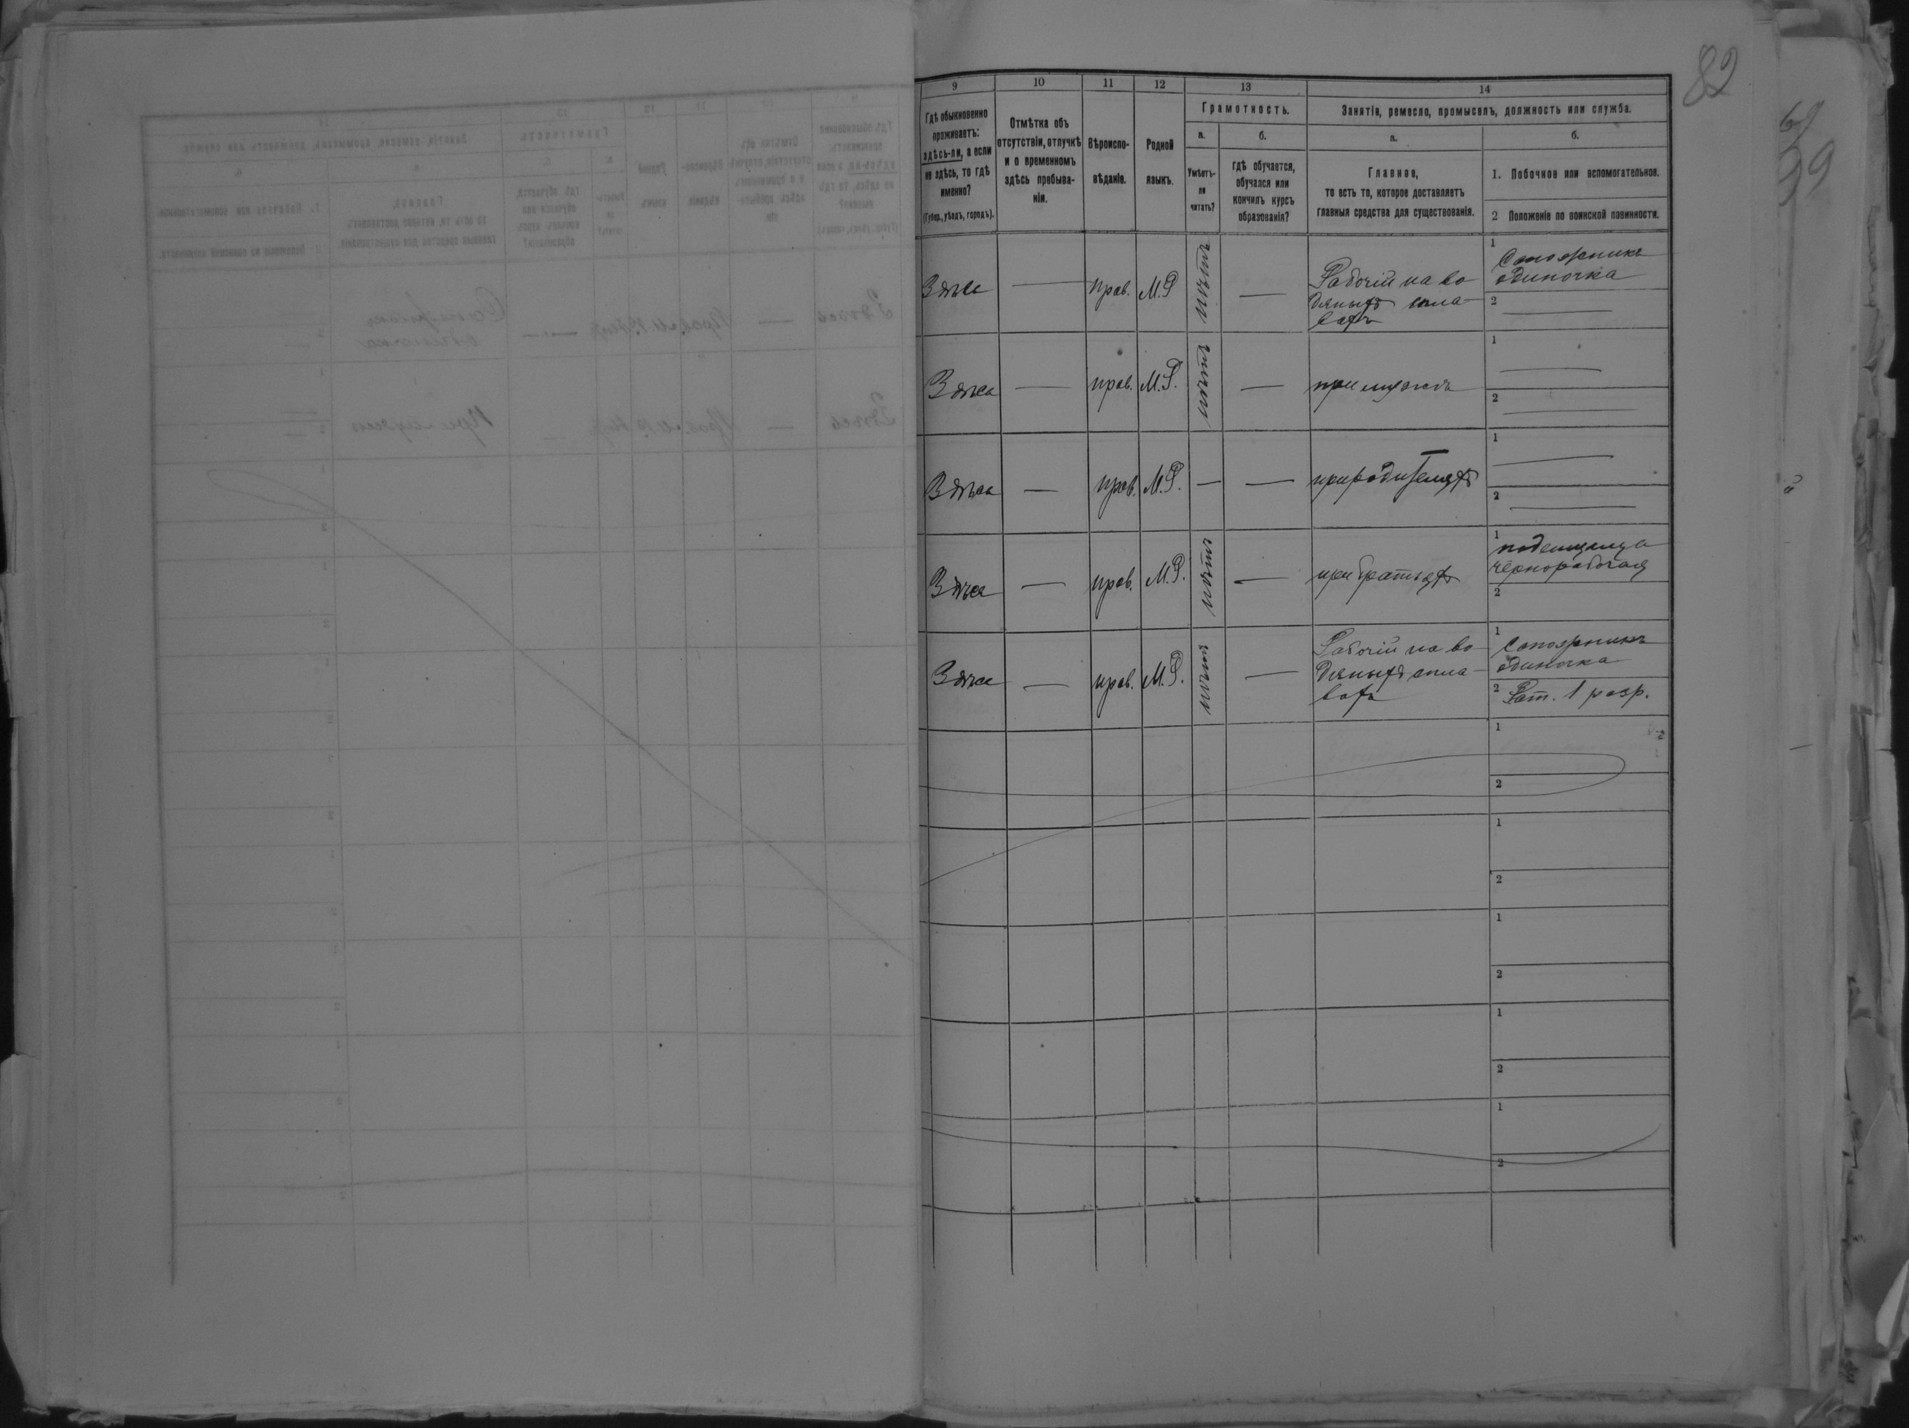 82
9 10 11 12 13 14
Гдѣ обыкновенно
проживаетъ:
здѣсь-ли, а если
не здѣсь, то гдѣ
именно?
(Губер., уѣздъ, городъ).
Отмѣтка объ
отсутствіи, отлучкѣ
и о временномъ
здѣсь пребыва-
ніи.
Вѣроиспо-
вѣданіе.
Родной
языкъ.
Грамотность.
а.
Умѣетъ-
ли
читать?
б.
гдѣ обучается,
обучался или
кончилъ курсъ
образованія?
Занятіе, ремесло, промыселъ, должность или служба.
а.
Главное,
то есть то, которое доставляетъ
главныя средства для существованія.
б.
1. Побочное или вспомогательное.
2 Положеніе по воинской повинности.
Здѣсь — прав. М.Р нѣтъ —
Рабочій на во-
дяныхъ спла-
вахъ
1 Сапожникъ
одиночка
2 —
Здѣсь — прав. М.Р. нѣтъ — при мужѣ
1 —
2 —
Здѣсь — прав. М.Р. — — при родителяхъ
1 —
2 —
Здѣсь — прав. М.Р. нѣтъ — при братьяхъ
1 поденщица
чернорабочая
2
Здѣсь — прав. М.Р. нѣтъ —
Рабочій на во-
дяныхъ спла-
вахъ
1 Сапожникъ
одиночка
2 Рат. 1 разр.
1
2
1
2
1
2
1
2
1
2